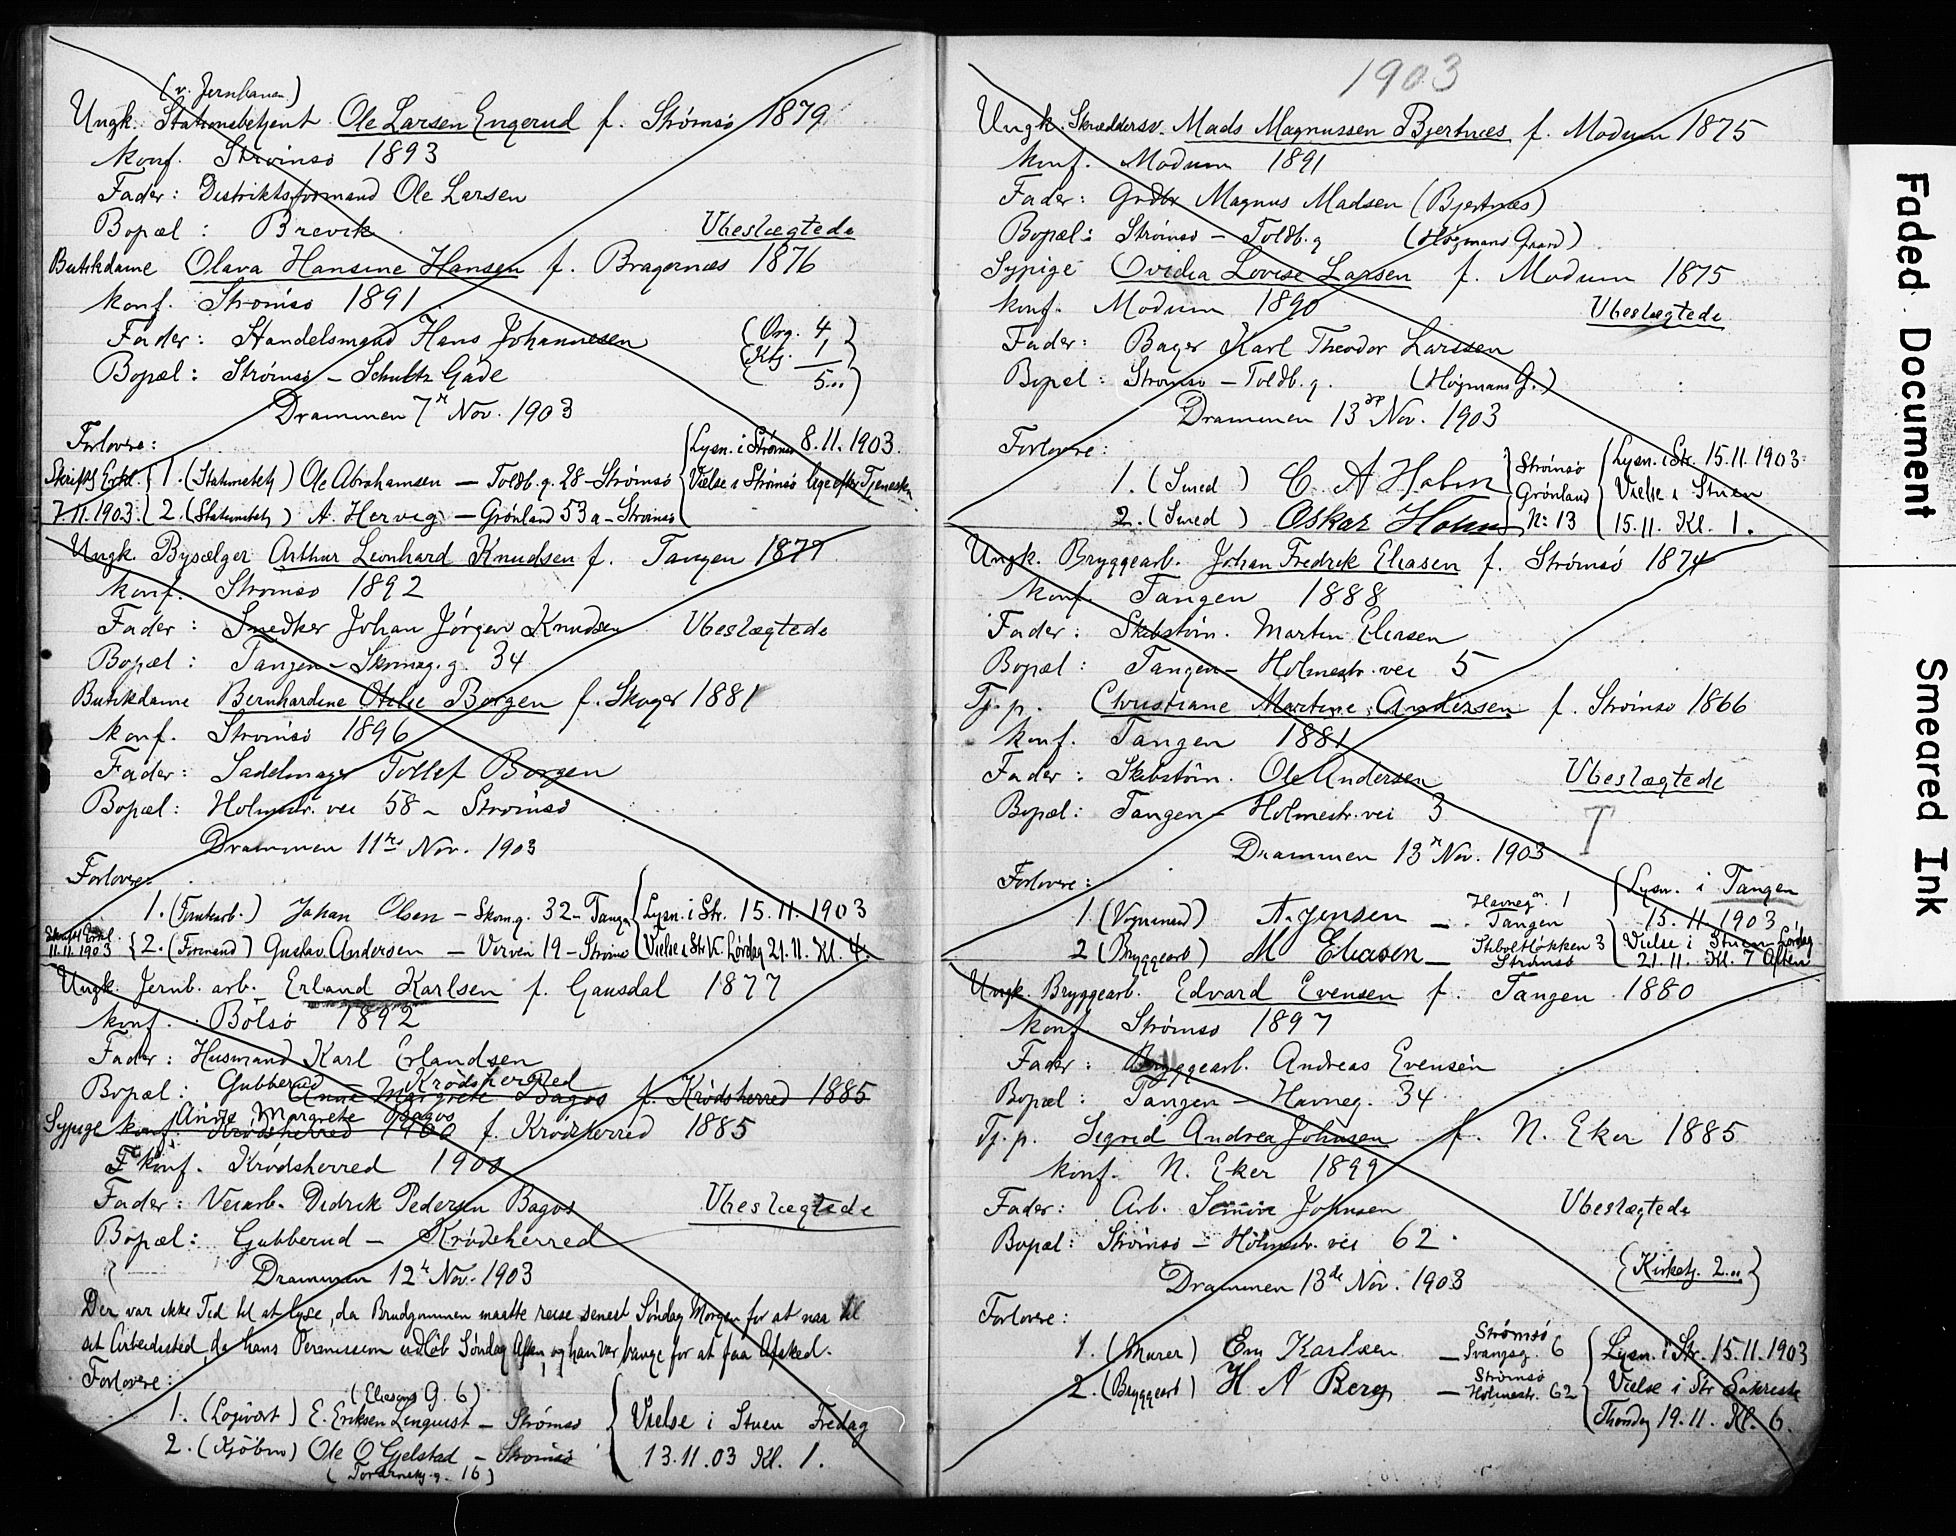 (v. Jernbanen)
Ungk. Stationsbetjent Ole Larsen Engerud f. Strømsø 1879
konf. Strømsø 1893
Fader: Distriktsformand Ole Larsen
Bopæl: Brevik
Ubeslægtede
Butikdame Olava Hansine Hansen f. Bragernæs 1876
konf. Strømsø 1891
Fader: Handelsmand Hans Johannesen
(Org. 4)
(Kkj. 1)
Bopæl: Strømsø – Schultz Gade
(5..)
Drammen 7 Nov. 1903
Forlovere:
Skriftl Erkl. 7.11.1903
1. (Stationsbetj) Ole Abrahamsen – Toldb. g. 28 – Strømsø
2. (Stationsbetj) A. Hervig – Grønland 53a – Strømsø
Lysn. i Strømsø 8.11.1903.
Vielse i Strømsø lige efter Tjenesten
Ungk. Bysælger Arthur Leonhard Knudsen f. Tangen 1877
konf. Strømsø 1892
Fader: Snedker Johan Jörgen Knudsen Ubeslægtede
Bopæl: Tangen – Skomag. g. 34
Butikdame Bernhardine Otilie Borgen f. Skoger 1881
konf. Strømsø 1896
Fader: Sadelmager Tollef Borgen
Bopæl: Holmestr. vei 58 – Strømsø
Drammen 11te Nov. 1903
Forlovere:
1. (Tomtearb.) Johan Olsen – Skom.g. 32 – Tangen
Skriftl Erkl. 11.11.1903 2. (Formand) Gustav Andersen – Verven 19 – Strømsø
Lysn. i Str. 15.11.1903
Vielse i Str K. Lørdag 21.11. Kl. 4.
Ungk. Jernb. arb. Erland Karlsen f. Gausdal 1877
konf. Bolsö 1892
Fader: Husmand Karl Erlandsen
Bopæl: Gubberud Krødsherred
Anne Margrete Bagos f. Krødsherred 1885
Anne Margrete Bagos
Sypige konf. Krødsherred 1900 f. Krødsherred 1885
F konf. Krødsherred 1900
Fader: Veiarb. Didrik Pedersen Bagos Ubeslægtede
Bopæl: Gubberud – Krødsherred
Drammen 12 Nov. 1903
Der var ikke Tid til at lyse, da Brudgommen maatte reise senest Søndag Morgen for at naa til
sit Arbeidssted, da hans Permission udløb Søndag Aften, og han var bange for at faa Afsked.
Forlovere:
(Eliesons G. 6)
1. (Logivært) E. Eriksen Lenquist – Strømsø
2. (Kjøbm) Ole O Gjelstad – Strømsø
Vielse i Stuen Fredag
13.11.03 Kl. 1.
1903
Ungk. Skræddersv. Mads Magnussen Bjertnæs f. Modum 1875
konf. Modum 1891
Fader: Grdbr Magnus Madsen (Bjertnæs)
Bopæl: Strømsø – Toldb. g (Høgmans Gaard)
Sypige Ovidia Lovise Larsen f. Modum 1875
konf. Modum 1890 Ubeslægtede
Fader: Bager Karl Theodor Larssen
Bopæl: Strømsø – Toldb. g. (Høgmans G.)
Drammen 13 Nov. 1903
Forlovere:
1. (Smed) C. A Holm
2. (Smed) Oskar Holm
Strømsø
Grønland
No: 13
Lysn. i Str. 15.11.1903
Vielse i Stuen
15.11. Kl. 1.
Ungk. Bryggearb. Johan Fredrik Eliasen f. Strømsö 1874
konf. Tangen 1888
Fader: Skibstøm. Martin Eliasen
Bopæl: Tangen – Holmestr. vei 5
Tj. p. Christiane Martine Andersen f. Strømsø 1866
konf. Tangen 1881
Fader: Skibstøm. Ole Andersen Ubeslægtede
Bopæl: Tangen – Holmestr. vei 3
T
Drammen 13 Nov. 1903
Forlovere:
1. (Vognmand) A. Jensen – Havneg. 1 Tangen
2 (Bryggearb) M Eliasen – Skiboltløkken 3 Strømsø
Lysn. i Tangen
15.11 1903
Vielse i Stuen Lørdag
21.11. Kl. 7 Aften
Ungk. Bryggearb. Edvard Evensen f. Tangen 1880
konf. Strømsø 1897
Fader: Bryggearb. Andreas Evensen
Bopæl: Tangen – Havneg. 34
Tj. p. Sigrid Andrea Johnsen f. N. Eker 1885
konf. N. Eker 1899
Fader: Arb. Simon Johnsen Ubeslægtede
Bopæl: Strømsø – Holmestr. vei 62.
(Kirketj. 2..)
Drammen 13de Nov. 1903
Forlovere:
1. (Murer) Em Karlsen – Strømsø Svangsg. 6
2. (Bryggearb) H A Berg – Strømsø Holmestr. 62
Lysn. i Str. 15.11.1903
Vielse i Str Sakristi
Thorsdag 19.11. Kl. 6.
Faded Document
Smeared Ink